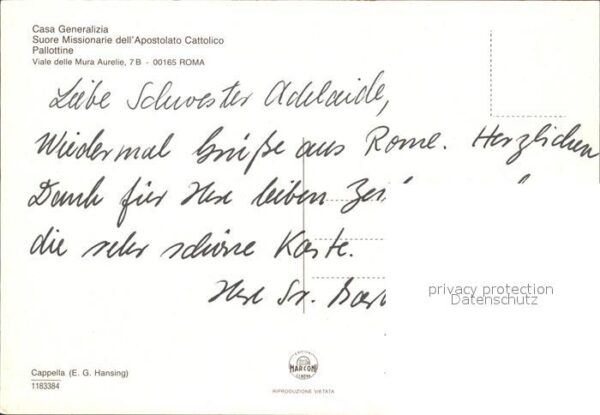 Casa Generalizia
Suore Missionarie dell'Apostolato Cattolico
Pallottine
Viale delle Mura Aurelie, 7 B - 00165 ROMA
Liebe Schwester Adelaide,
Wiedermal Grüße aus Rome. Herzlichen
Dank für Ihre lieben
die sehr schöne Karte.
Ihre Sr.
privacy protection
Datenschutz
Cappella (E. G. Hansing)
1183384
MARCONI
GENOVA
RIPRODUZIONE VIETATA